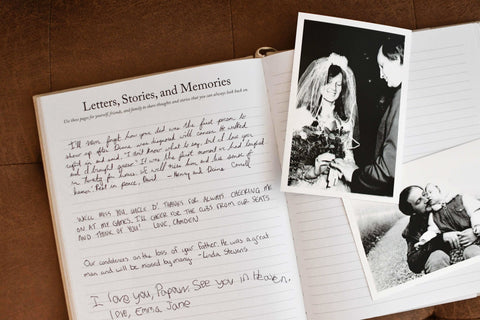 Letters, Stories, and Memories
Use these pages for yourself, friends, and family to share thoughts and stories that you can always look back on.
I'll never forget how your dad was the first person to
show up after Diana was diagnosed with cancer. He walked
right in and said, "I don't know what to say, but I love you
and I brought pizza." It was the first moment we had laughed
in twenty five hours. We will miss him and his sense of
humor. Rest in peace, David. - Henry and Diana Connell
WE'LL MISS YOU, UNCLE D! THANKS FOR ALWAYS CHEERING ME
ON AT MY GAMES. I'LL CHEER FOR THE CUBS FROM OUR SEATS
AND THINK OF YOU! LOVE, CAMDEN
Our condolences on the loss of your father. He was a great
man and will be missed by many. - Linda Stevens
I love you, Papaw. See you in Heaven.
Love, Emma Jane